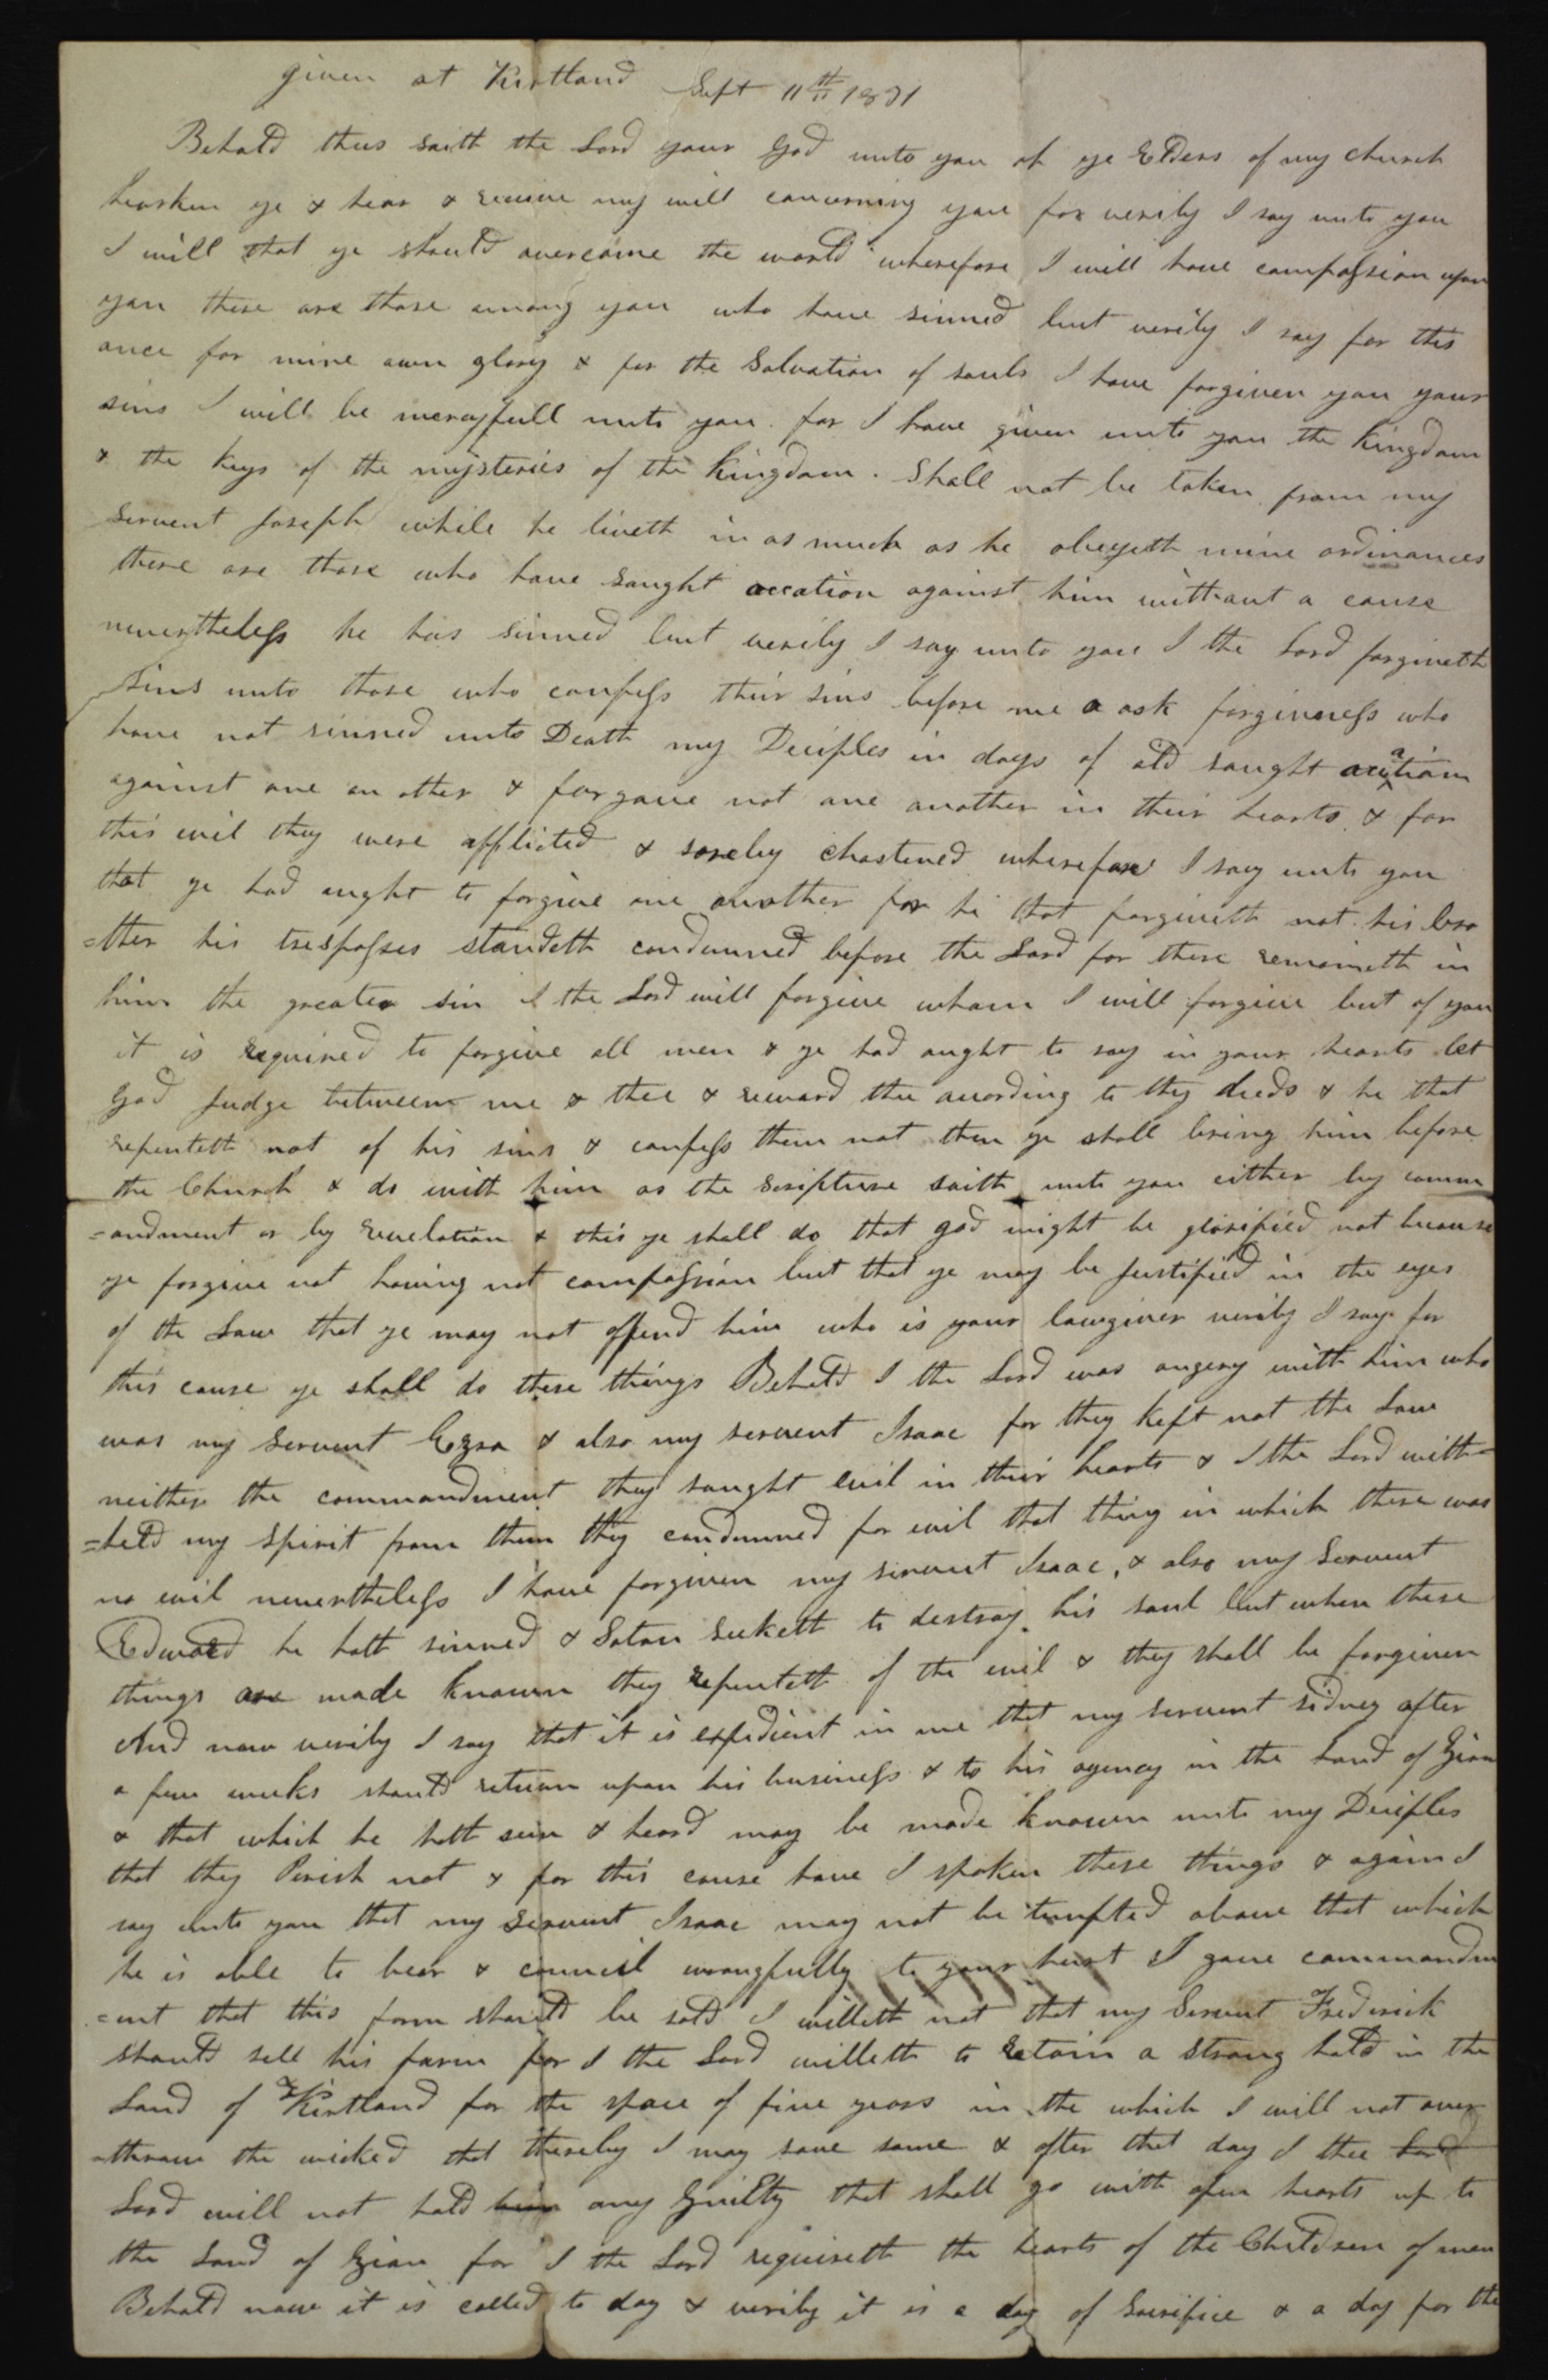 given at Kirtland Sept 11th 1831
Behold thus saith the Lord your God unto you oh ye Elders of my church
hearken ye & hear & receive my will concerning you for verily I say unto you
I will that ye should overcome the world wherefore I will have compassion upon
you there are those among you who have sinned but verily I say for this
once for mine own glory & for the Salvation of souls I have forgiven you your
sins I will be mercyfull unto you for I have given unto you the Kingdom
& the keys of the mysteries of the Kingdom. Shall not be taken from my
Servent Joseph while he liveth in as much as he obeyeth mine ordinances
there are those who have Saught occation against him without a cause
nevertheless he has sinned but verily I say unto you I the Lord forgiveth
sins unto those who confess their sins before me & ask forgiveness who
have not sinned unto Death my Deciples in days of old saught occation
against one an other & forgave not one another in their hearts & for
this evil they were afflicted & soreley chastened wherefore I say unto you
that ye had aught to forgive one another for he that forgiveth not his bro
=ther his trespasses standeth condemned before the Lord for there remaineth in
him the greater sin I the Lord will forgive whom I will forgive but of you
it is required to forgive all men & ye had aught to say in your hearts let
God Judge between me & thee & reward thee according to thy deeds & he that
repenteth not of his sins & confess them not then ye shall bring him before
the Church & do with him as the Scripture saith unto you either by comm
=andment or by Revelation & this ye shall do that god might be glorified not because
ye forgive not having not compassion but that ye may be Justified in the eyes
of the Law that ye may not offend him who is your lawgiver verily I say for
this cause ye shall do these things Behold I the Lord was angery with him who
was my Servent Ezra & also my servent Isaac for they kept not the Law
neither the commandment they saught evil in their hearts & I the Lord with=
=held my Spirit from them they condemned for evil that thing in which there was
no evil nevertheless I have forgiven my servent Isaac, & also my Servent
Edward he hath sinned & Satan Seeketh to destroy his soul but when these
things are made known they repenteth of the evil & they shall be forgiven
And now verily I say that it is expedient in me that my servent sidney after
a few weeks should return upon his business & to his agency in the Land of Zion
& that which he hath seen & heard may be made known unto my Deciples
that they Perish not & for this cause have I spoken these things & again I
say unto you that my Servent Isaac may not be tempted above that which
he is able to bear & council wrongfully to your hurt I gave commandm
=ent that this farm should be sold I willeth not that my Servent Frederick
should sell his farm for I the Lord willeth to Retain a Strong hold in the
Land of Kirtland for the space of five years in the which I will not over
=throw the wicked that thereby I may save some & after that day I thee Lord
Lord will not hold him any Guilty that shall go with open hearts up to
the Land of Zion for I the Lord requireth the hearts of the Children of men
Behold now it is called to day & verily it is a day of Sacrifice & a day for the